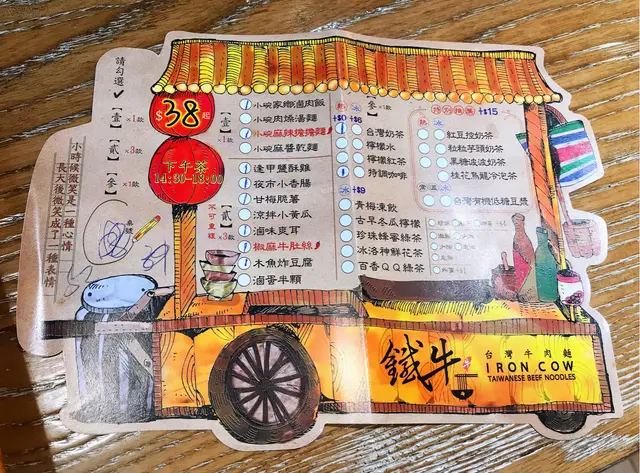 請勾選
✓
【壹】x1款
【貳】x3款
【參】x1款
小時候微笑是一種心情
長大後微笑成了一種表情
$38起
下午茶
14:30-18:00
【壹】x1款
小碗家鄉鹵肉飯
小碗肉燥湯麵
小碗麻辣擔擔麵
小碗麻醬乾麵
不可重複
【貳】x3款
逢甲鹽酥雞
夜市小香腸
甘梅脆薯
涼拌小黃瓜
滷味爽耳
椒麻牛肚絲
木魚炸豆腐
滷蛋半顆
【參】x1款
熱 冰
+$0 +$6
台灣奶茶
檸檬水
檸檬紅茶
特調咖啡
冰 +$9
青梅凍飲
古早冬瓜檸檬
珍珠蜂蜜綠茶
冰洛神鮮花茶
百香QQ綠茶
特別推薦 +$15
熱 冰
紅豆控奶茶
粒粒芋頭奶茶
黑糖波波奶茶
桂花烏龍冷泡茶
台灣有機低糖豆漿
鐵牛
台灣牛肉麵
IRON COW
TAIWANESE BEEF NOODLES